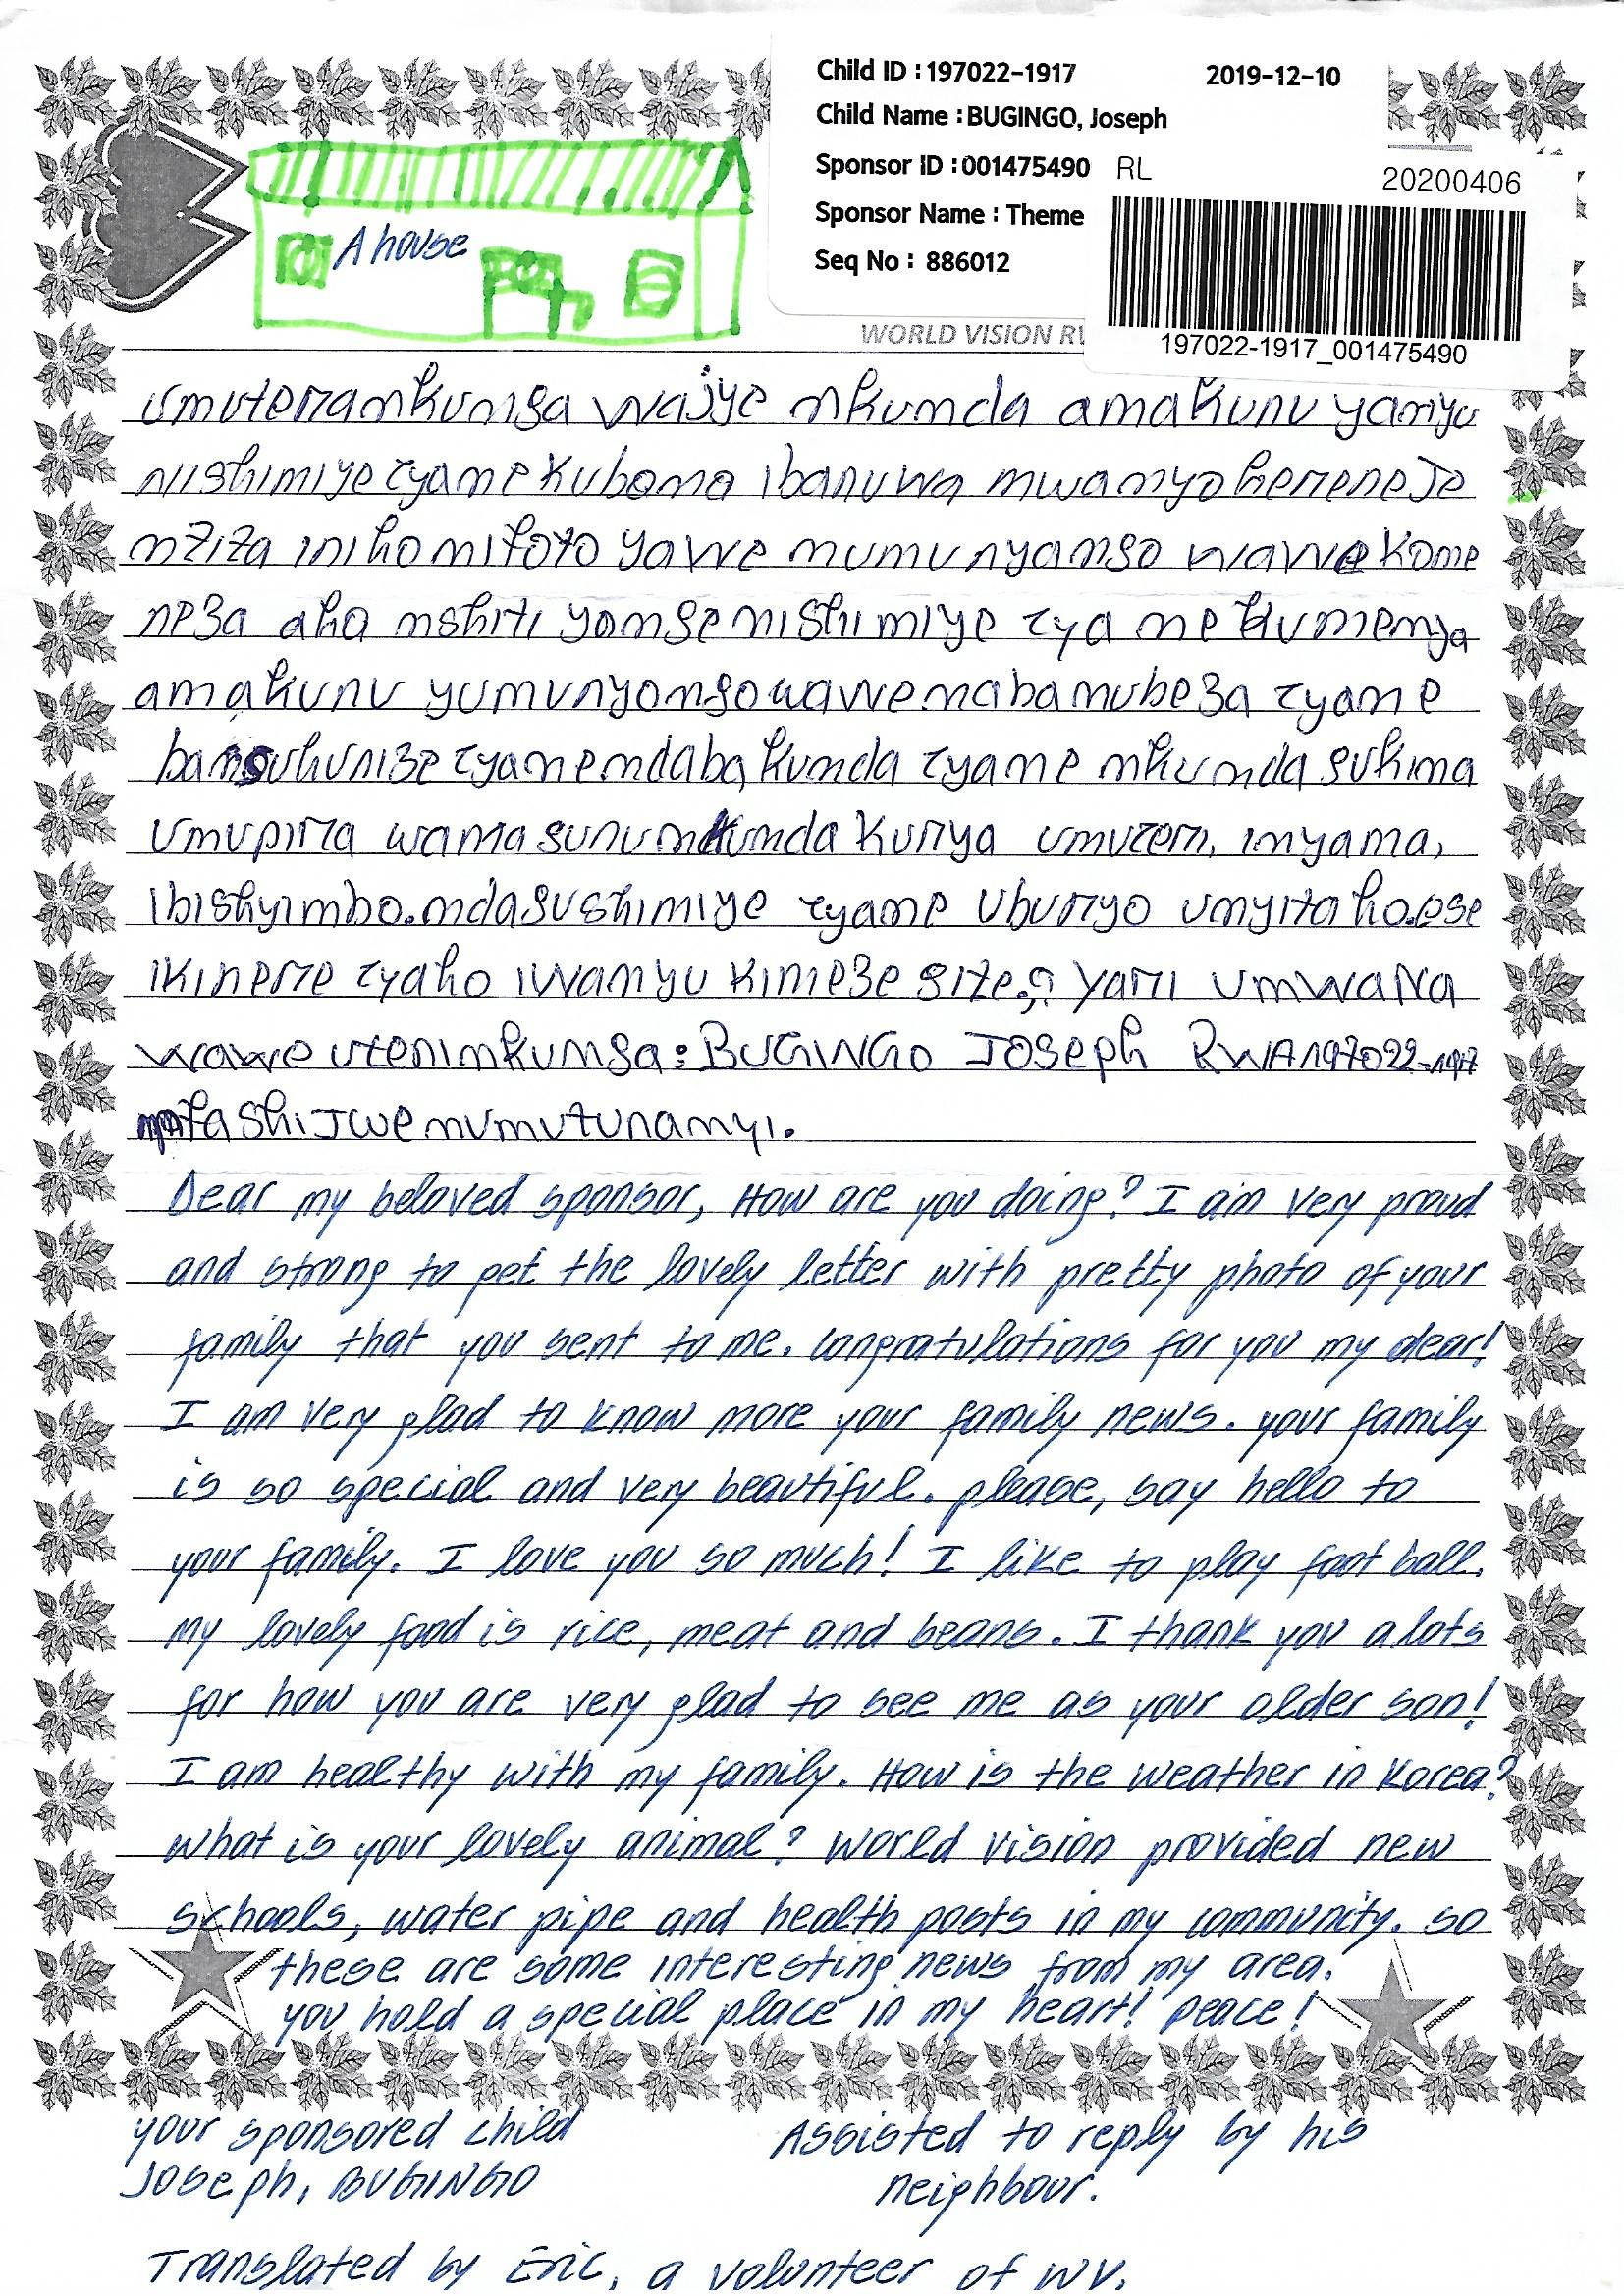 Child ID : 197022-1917 2019-12-10
Child Name : BUGINGO, Joseph
Sponsor ID : 001475490 RL 20200406
Sponsor Name : Theme
Seq No : 886012
A house
WORLD VISION
197022-1917_001475490
umuterankunga wajye nkunda amakuru yanyu
nishimiye cyane kubona ibaruwa mwanyohereneje
nziza iriho nifoto yawe numuryango wawe kome
neza aho nshiti yange nishimiye cyane kumenya
amakuru yumuryango wawe nabanubeza cyane
cyane ndabakunda cyane nkunda gukina
umupira wamaguru nkunda kurya umuceri, inyama,
ibishyimbo. ndagushimiye cyane uburyo unyitaho. ese
ikirere cyaho iwanyu kimeze gite? yari umwana
wawe uterinkunga: BUGINGO JOSEPH RWA197022-1917
ntashijwe numuturanyi.
Dear my beloved sponsor, How are you doing? I am very proud
and strong to get the lovely letter with pretty photo of your
family that you sent to me. congratulations for you my dear!
I am very glad to know more your family news. your family
is so special and very beautiful. please, say hello to
your family. I love you so much! I like to play foot ball.
My lovely food is rice, meat and beans. I thank you alots
for how you are very glad to see me as your older son!
I am healthy with my family. How is the weather in Korea?
What is your lovely animal? World vision provided new
schools, water pipe and health posts in my community. so
these are some interesting news from my area.
you hold a special place in my heart! peace!
your sponsored child Assisted to reply by his
Joseph, BUGINGO neighbour.
Translated by Eric, a volunteer of WV.